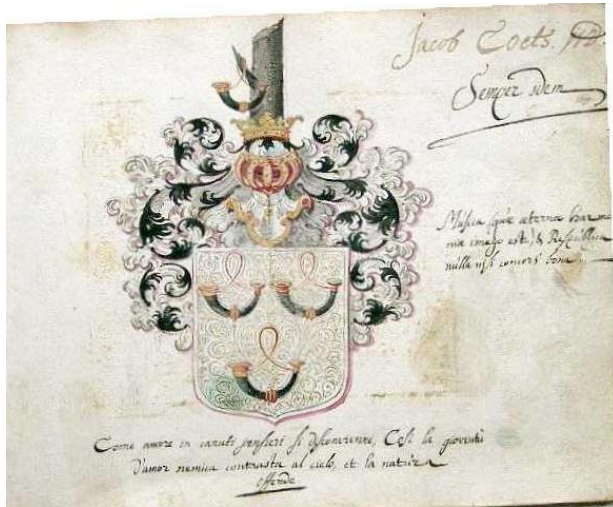 Jacob Coets.
Semper idem
Musica (quæ æterna harmo
nia imago est) & Respublica
nulla nisi concors bona
Come amore in canuti pensieri si disconviene, Cosi la gioventù
D'amor nemica contrasta al cielo, et la natura
offende